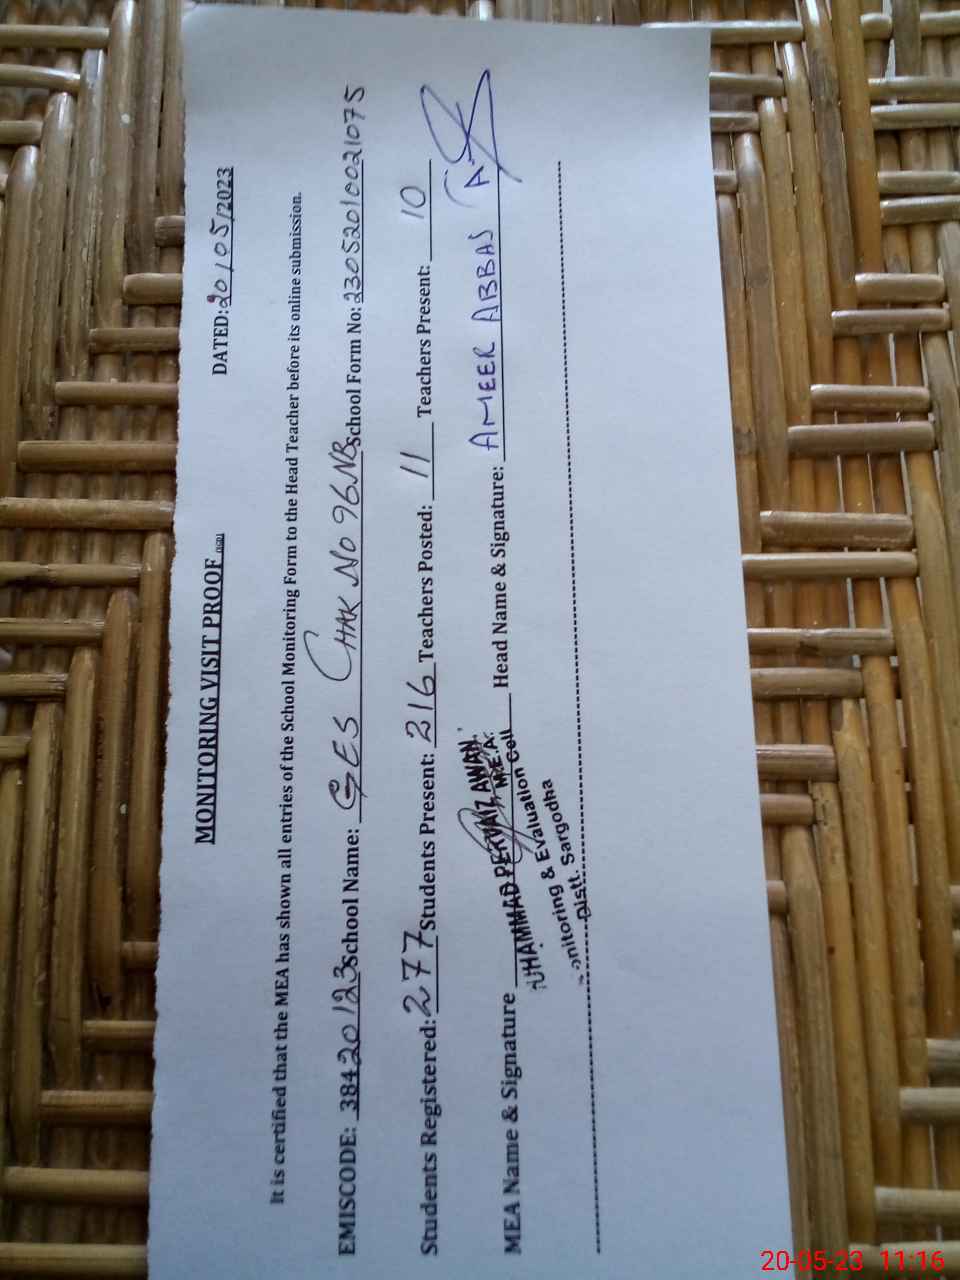 MONITORING VISIT PROOF
DATED: 20/05/2023
It is certified that the MEA has shown all entries of the School Monitoring Form to the Head Teacher before its online submission.
EMISCODE: 38420123 School Name: GES CHAK No 96NB School Form No: 2305201002 1075
Students Registered: 277 Students Present: 216 Teachers Posted: 11 Teachers Present: 10
MEA Name & Signature Head Name & Signature: AMEER ABBAS
MUHAMMAD PERVAIZ AWAN
M.E.A.
Monitoring & Evaluation Cell
Distt. Sargodha
20-05-23 11:16